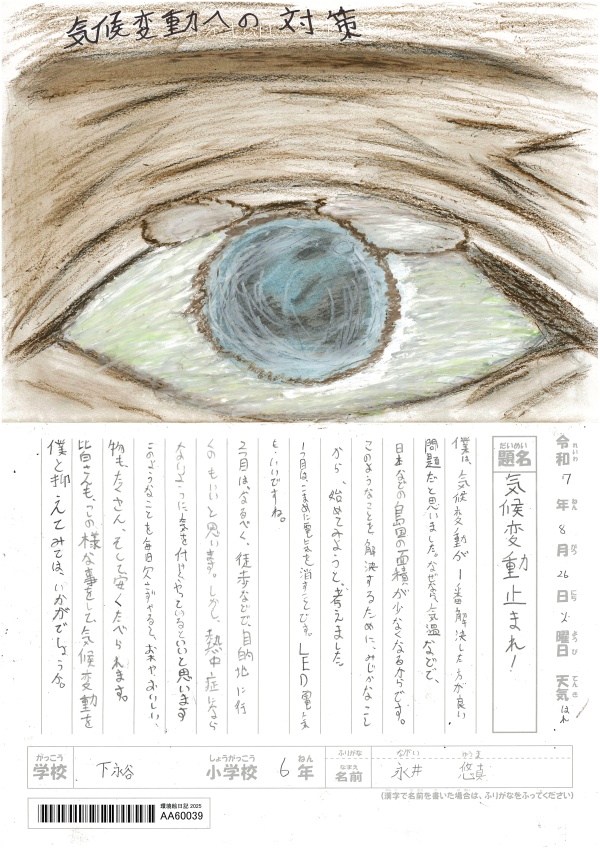 気候変動への対策
令和7年8月26日火曜日 天気はれ
れいわ ねん がつ にち ようび てんき
だいめい
題名 気候変動止まれ!
僕は、気候変動が一番解決した方が良い
問題だと思いました。なぜなら、気温などで、
日本などの島国の面積が少なくなるからです。
このようなことを解決するために、みじかなこと
から、始めてみようと、考えました。
1つ目は、こまめに電気を消すことです。LED電気
も、いいですね。
2つ目は、なるべく、徒歩などで、目的地に行
くのもいいと思います。しかし、熱中症になら
ないように、気を付けてやっているといいと思います
このようなことを毎日欠かさずやると、お米や、おいしい、
物も、たくさん、そして安くたべられます。
皆さんも、この様な事をして気候変動を
僕と抑えてみては、いかがでしょうか。
がっこう しょうがっこう ねん ふりがな ながい ゆうま
学校 下永谷 小学校 6年 なまえ 名前 永井 悠真
(漢字で名前を書いた場合は、ふりがなをふってください)
環境絵日記 2025
AA60039